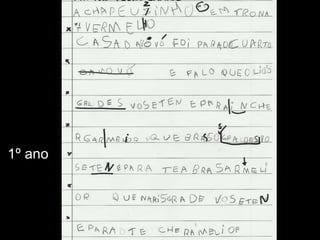 A CHAPEUZINHO E EM TRONA
VERMELHO
CASA DA VOVÓ FOI PARA O CUARTO
DAVOVÓ E FALO QUE OLIOS
GRADES VOSETEN EPARA INCHE
RGAR MELIOR QUE BRASO GRADES VO
SETEN EPARA TE ABRASAR MELI
OR QUE NARIS GRADE VOSETEN
EPARA OTE CHERAR MELIOR
1º ano